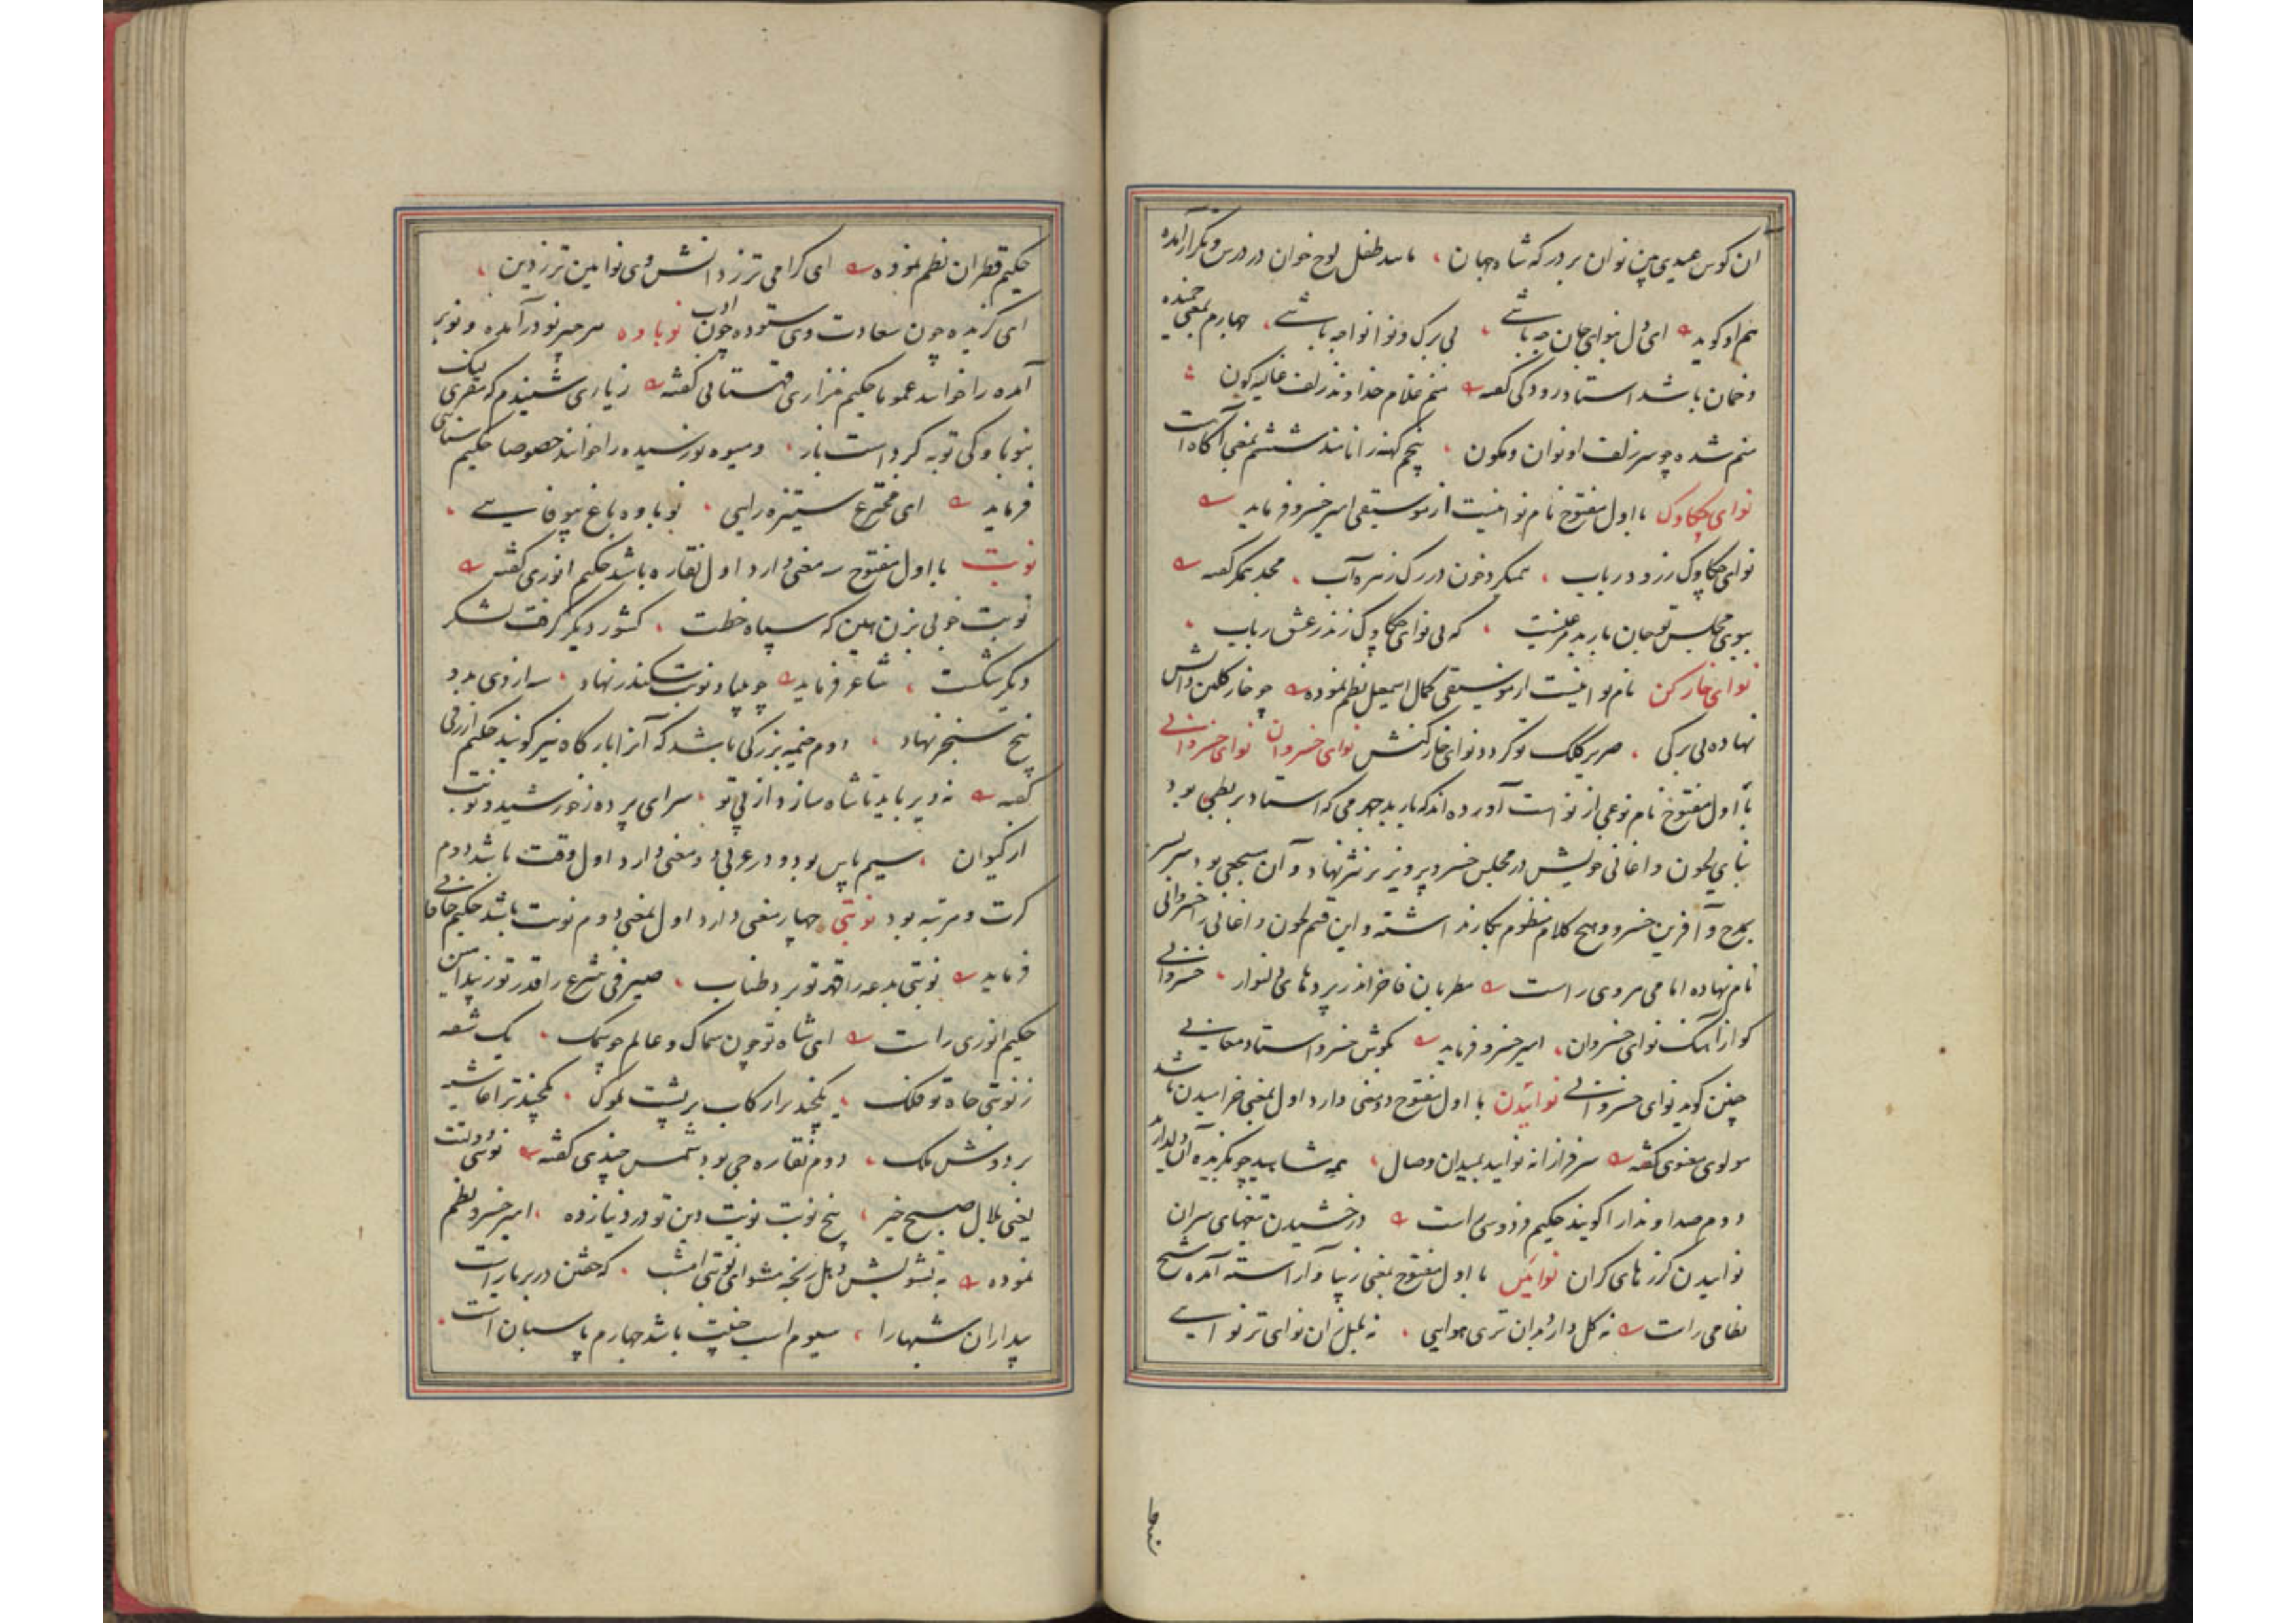 آن کوس عیدی بین نوان بر درگه شاه جهان مانند طفل لوح خوان در درس و تکرار آمده
هم او گوید ای دل بنوای جان چه باشی بی برگ و نوا نوا چه باشی چهارم بمعنی خمیده
و خمان باشد استاد رودکی گفته منم غلام خداوند زلف غالیه گون
تنم شده چو سر زلف او نوان و نگون پنجم کهنه را نامند ششم بمعنی آگاه است
نوای چکاوک با اول مفتوح نام نوائیست از موسیقی امیر خسرو فرماید
نوای چکاوک زرود رباب همیکرد خون در رگ زهره آب مجد همگر گفته
ببوی مجلس تو جان باربد که بی نوای چکاوک زند زعش رباب
نوای خارکن نام نوائیست از موسیقی کمال اسمعیل نظم نموده چو خار کلبن دانش
نهاده بی برگی صریر کلک تو کردد نوای خارکنش نوای خسروان نوای خسروانی
با اول مفتوح نام نوعی از نواست آورده اند که باربد جهرمی که استاد بربطی بود
بنای لحون و اغانی خویش در مجلس خسرو پرویز بر نثر نهاد و آن سجعی بود سربسر
بمدح و آفرین خسرو و هیچ کلام منظوم بکار نداشته و این قسم لحون و اغانی را خسروانی
نام نهاده امامی هروی راست مطربان فاخر اندر پردهای خسروانی
کو از آهنک نوای خسروان امیر خسرو فرماید بگوش خسرو استاد معانی
چنین گوید نوای خسروانی نوائیدن با اول مفتوح دو معنی دارد اول بمعنی خرامیدن باشد
مولوی معنوی گفته سرفرازانه نواید بمیدان وصال
دوم صدا و ندا را گویند حکیم فردوسی راست درخشیدن تیغهای سران
نوائیدن گرزهای گران نوائین با اول مفتوح بمعنی زیبا و آراسته آمده شیخ
نظامی راست نه گل دارد بدان تری هوایی نه بلبل زان نوای تر نوایی
حکیم قطران نظم نموده ای گرامی تر ز دانش وی نوایین تر ز دین
ای گزیده چون سعادت وی ستوده چون ادب نوباوه هر چیز نو درآمده و نوبر
آمده را خوانند عموما حکیم نزاری قهستانی گفته ز یاری شنیدم که مقری لبیک
بنوباوگی توبه کرد است باز و میوه نورسیده را خوانند خصوصا حکیم سنائی
فرماید ای مخترع ستیزه رایی نوباوه باغ بیوفایی
نوبت با اول مفتوح سه معنی دارد اول نقاره باشد حکیم انوری گفته
نوبت خوبی بزن هین که سپاه خطت کشور دیگر گرفت لشکر
دیگر شکست شاعر فرماید چو بنیاد نوبت سکندر نهاد سه از وی بد و
پنج سنجر نهاد دوم خیمه بزرگی باشد که آنرا بارگاه نیز گویند حکیم ازرقی
گفته نه دیر باید تا شاه سازد از پی تو سرای پرده ز خورشید و نوبت
از کیوان سیم پاس بود و در عربی دو معنی دارد اول وقت باشد دوم
کرت و مرتبه بود نوبتی چهار معنی دارد اول بمعنی دوم نوبت باشد حکیم خاقانی
فرماید نوبتی بدعه را قهر تو برد طناب صیرفی شرع را قدر تو زیبد امین
حکیم انوری راست ای شاه تو چون سماک و عالم چو سمک یک شقه
ز نوبتی جاه تو فلک یکچند را رکاب بر پشت ملوک یکچند ترا غاشیه
بر دوش ملک دوم نقاره چی بود شمس جندی گفته نوبتی دولتت
یعنی بلال صبح خیز پنج نوبت نوبت دین تو در دنیا زده امیر خسرو نظم
نموده به تشویش دهل رنجه مشو ای نوبتی امشب که خفتن در بر یار است
بیداران شبها را سیوم اسب جنیبت باشد چهارم پاسبان است